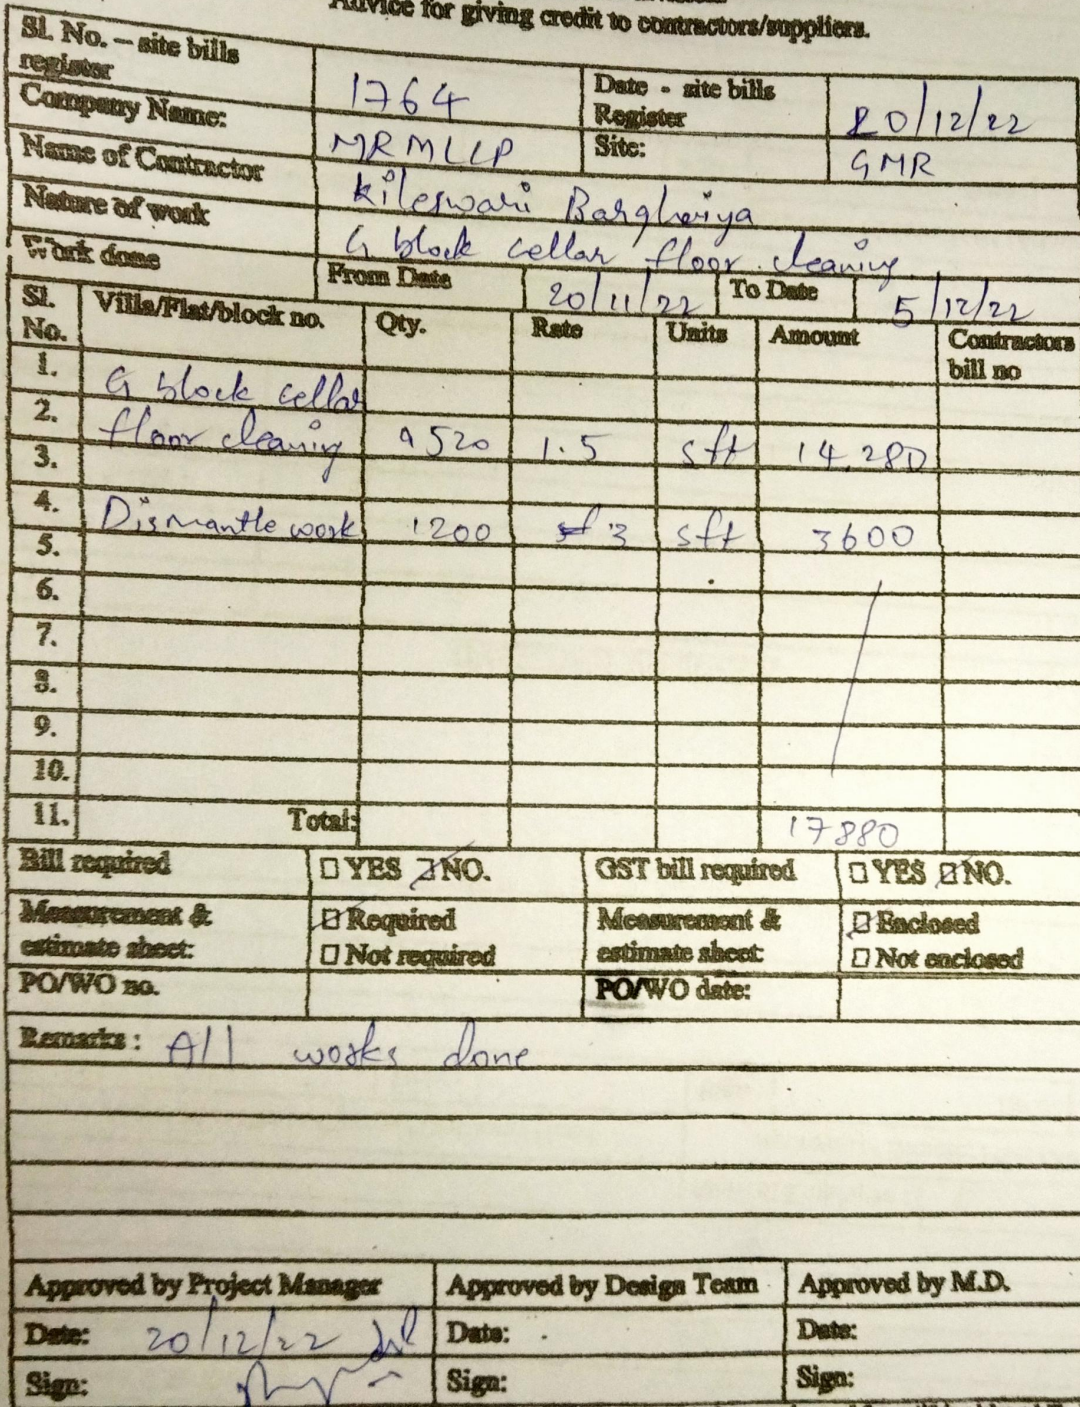 Advice for giving credit to contractors/suppliers.
Sl. No. – site bills register 1764 Date - site bills Register 20/12/22
Company Name: MRMLLP Site: GMR
Name of Contractor Kileswari Barghaiya
Nature of work G block cellar floor cleaning
Work done From Date 20/11/22 To Date 5/12/22
Sl. No. Villa/Flat/block no. Qty. Rate Units Amount Contractors bill no
1. G block cellar
2. floor cleaning 9520 1.5 sft 14,280
3.
4. Dismantle work 1200 3 sft 3600
5.
6.
7.
8.
9.
10.
11. Total: 17880
Bill required YES NO. GST bill required YES NO.
Measurement & estimate sheet: Required Measurement & estimate sheet: Enclosed
Not required Not enclosed
PO/WO no. PO/WO date:
Remarks : All works done
Approved by Project Manager Approved by Design Team Approved by M.D.
Date: 20/12/22 Date: Date:
Sign: Sign: Sign: